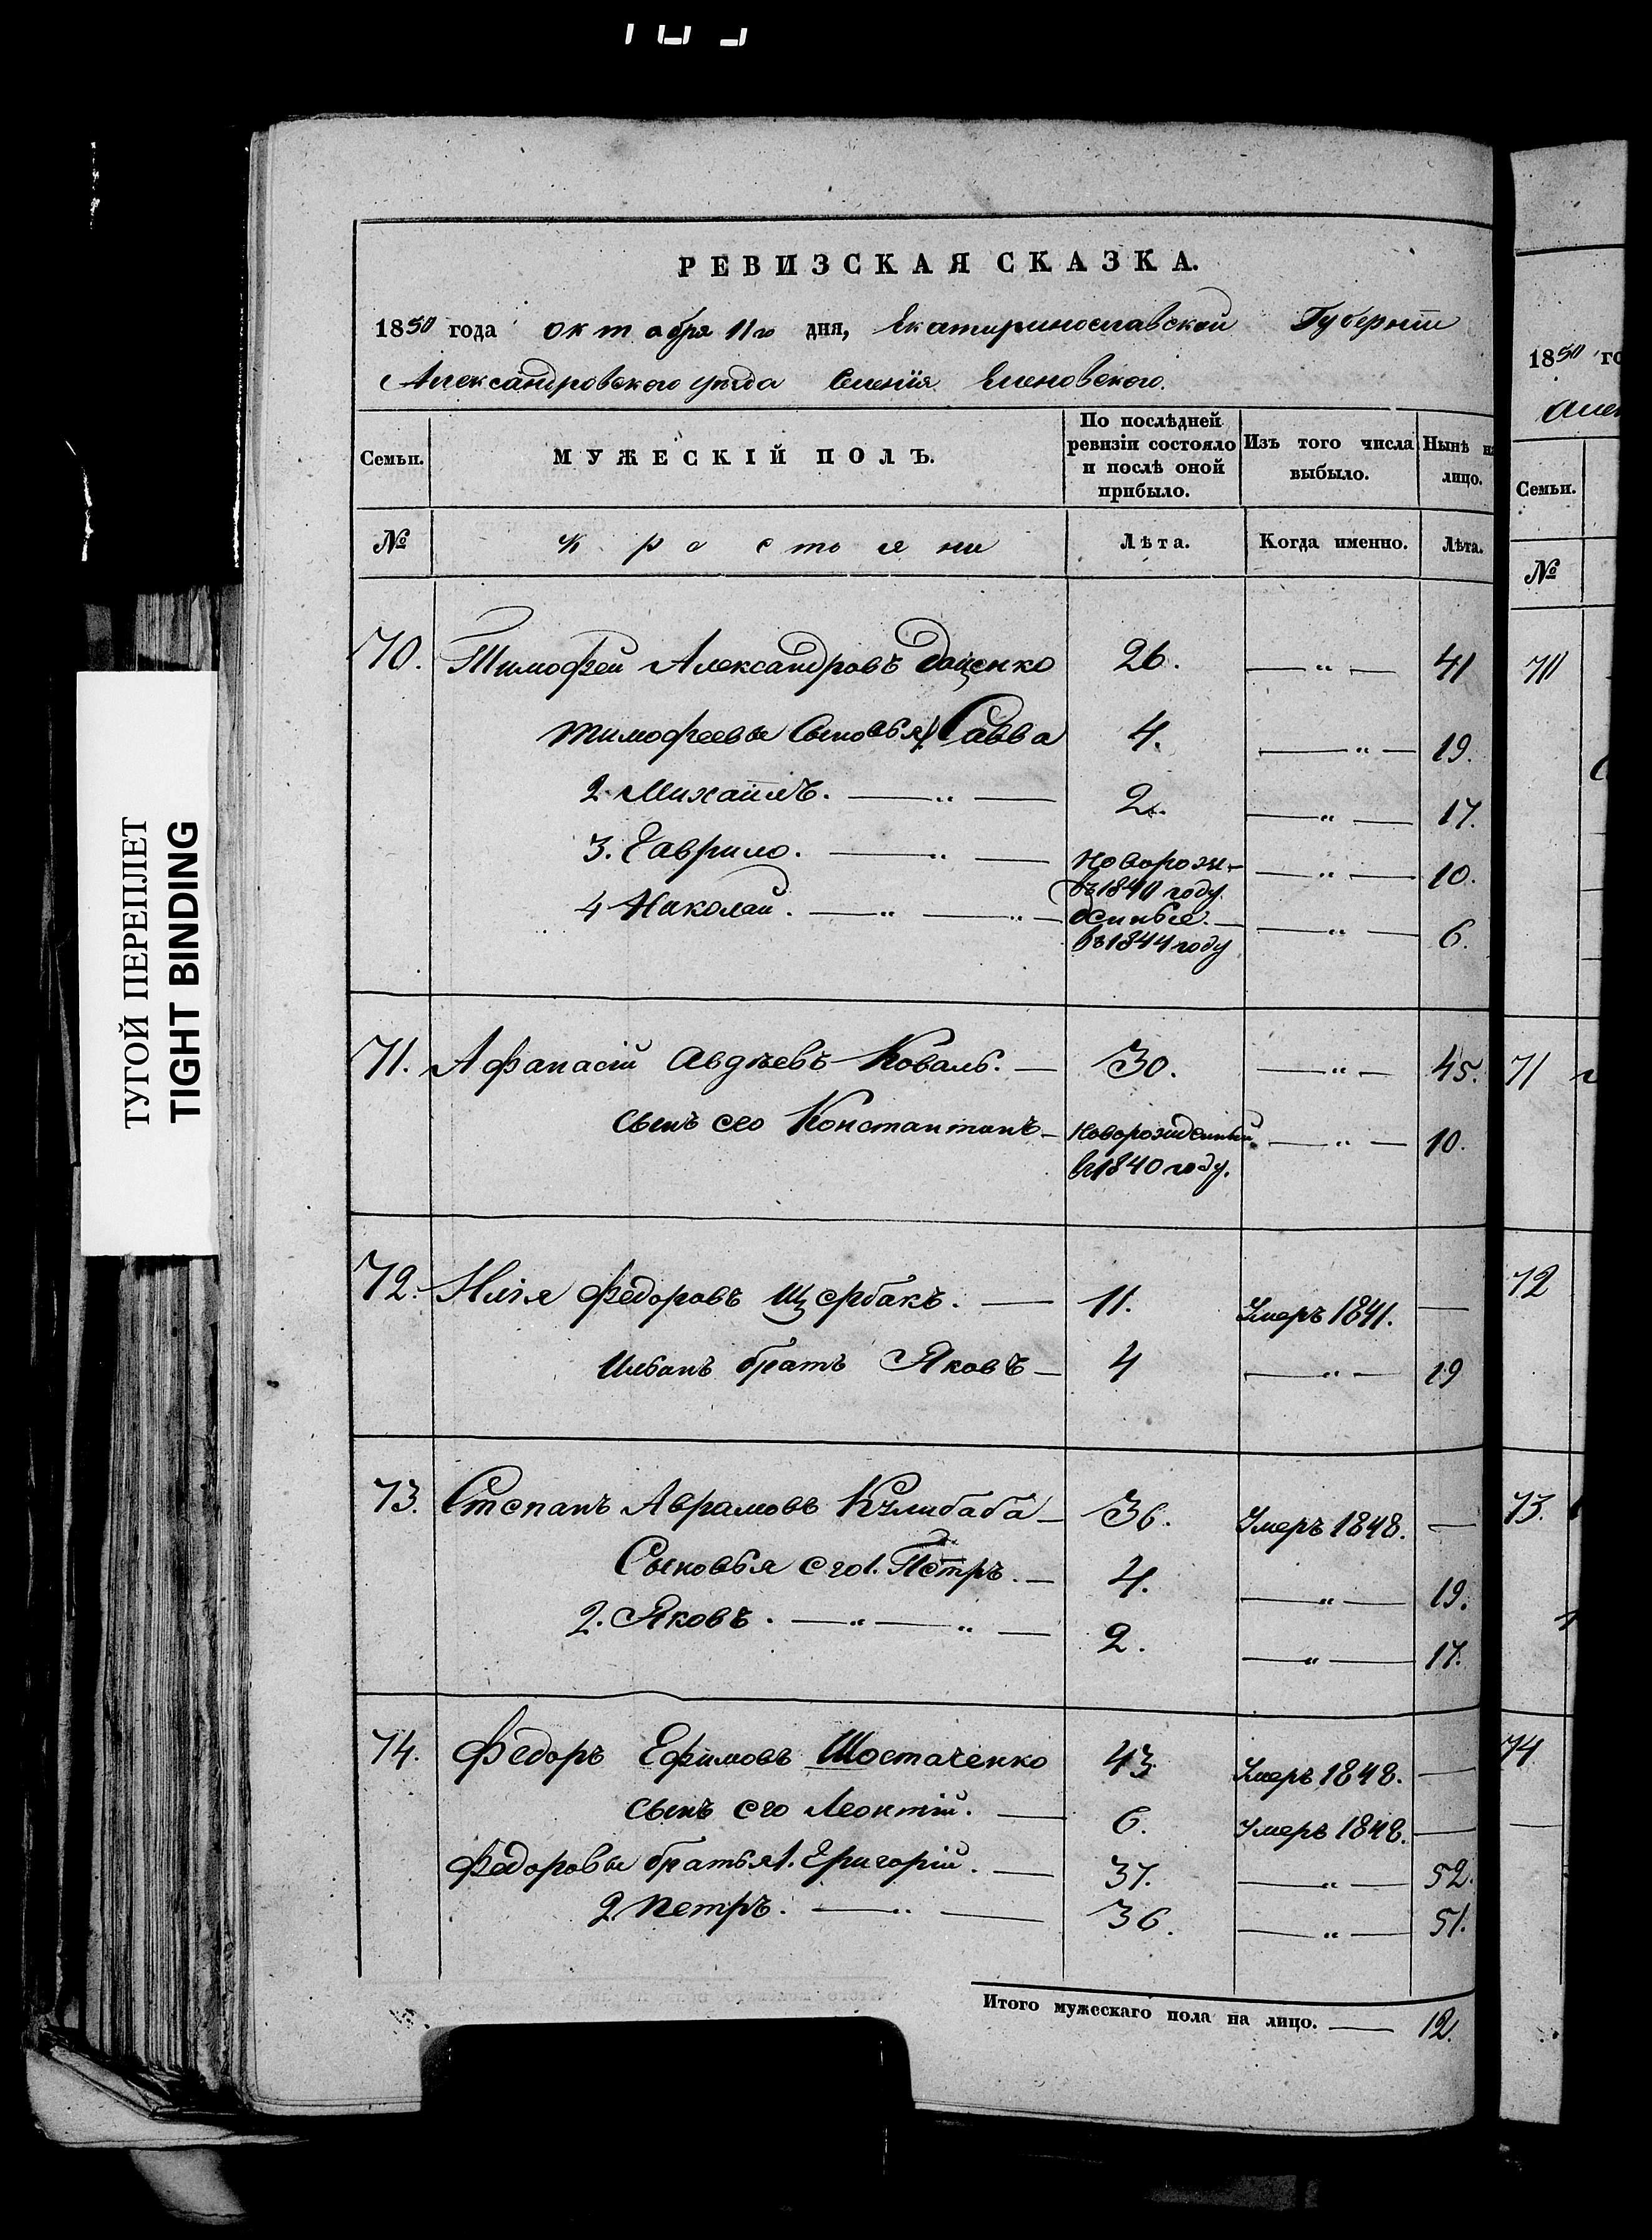 РЕВИЗСКАЯ СКАЗКА.
1850 года октября 11го дня, Екатеринославской Губернiи
Александровского уезда Селенiя Еленовского.
Семьи.
МУЖЕСКІЙ ПОЛЪ.
По послѣдней ревизіи состояло и послѣ оной прибыло.
Изъ того числа выбыло.
Нынѣ на лицо.
№
Крестьяни
Лѣта.
Когда именно.
Лѣта.
70. Тимофей Александровъ Даценко 26. — " — 41
Тимофеевы Сыновья 1 Савва 4. — " — 19.
2. Михаилъ. — " — 2. — " — 17.
3. Гаврило. — " — Новорожд- въ 1840 году. — " — 10.
4 Николай. — " — " — въ 1844 году — " — 6.
71. Афанасій Авдѣевъ Коваль. — 30. — " — 45.
сынъ его Константинъ — Новорожденный въ 1840 году. — " — 10.
72. Илія Федоровъ Щербакъ. — 11. Умеръ 1841. —
Ильинъ братъ Яковъ — 4 — " — 19
73. Степанъ Аврамовъ Кулибаба — 36. Умеръ 1848. —
Сыновья его 1. Петръ. — 4. — " — 19.
2. Яковъ. — " — " — 2. — " — 17.
74. Федоръ Ефимовъ Шостаченко 43 Умеръ 1848. —
сынъ его Леонтій. — 6. Умеръ 1848. —
Федоровы братья 1. Григорій. — 37. — " — 52.
2 Петръ. — " — 36. — " — 51.
Итого мужескаго пола на лицо. — 12.
ТУГОЙ ПЕРЕПЛЕТ
TIGHT BINDING
1850 го
Алек
Семьи.
№
70
71
72
73.
74